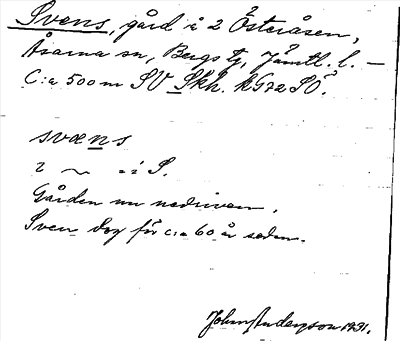 Svens, gård i 2 Österåsen,
Åsarna sn, Bergs tg, Jämtl. l. —
C:a 500 m SV Skh. kG72 SÖ.
svæns
2 ~ = i S.
Gården nu nedriven.
Sven dog för c:a 60 år sedan.
John Anderzson 1931.